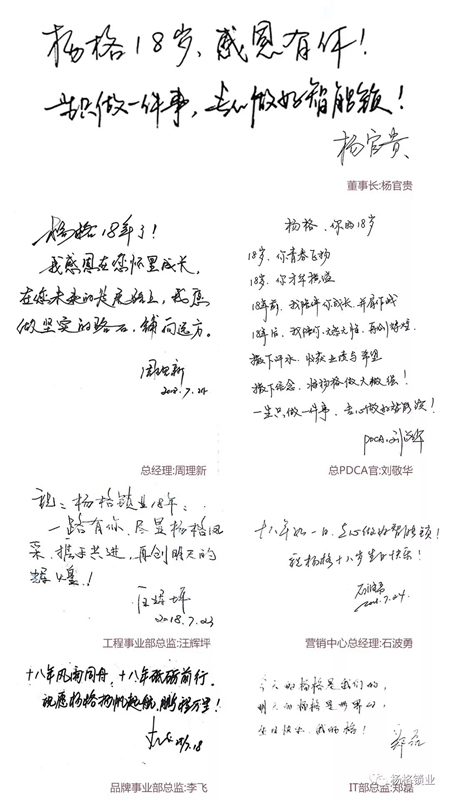 杨格18岁、感恩有伴！
一生只做一件事，专心做好智能锁！
杨官贵
董事长:杨官贵
杨格18年了！
我感恩在您怀里成长，
在您未来的发展路上，我愿
做坚定的路石，铺向远方。
周理新
2018.7.24
总经理:周理新
杨格、你的18岁
18岁、你青春飞扬
18岁、你才华横溢
18年前、我陪伴你成长、并肩作战
18年后、我陪你、再创辉煌
撒下汗水、收获业绩与希望
撒下信念、将杨格做大做强！
一生只做一件事、专心做好智能锁！
PDCA:刘敬华
总PDCA官:刘敬华
祝：杨格锁业18年：
一路有你、尽显杨格风
采、携手共进，再创明天的
辉煌！
汪辉坪
2018.7.23
工程事业部总监:汪辉坪
十八年如一日，专心做好智能锁！
祝杨格十八岁生日快乐！
石波勇
2018.7.24
营销中心总经理:石波勇
十八年风雨同舟，十八年砥砺前行。
祝愿杨格扬帆起航，鹏程万里！
李飞 7.18
品牌事业部总监:李飞
今天的杨格是我们的，
明天的杨格是世界的，
生日快乐，我的杨格！
郑磊
IT部总监:郑磊
杨格锁业